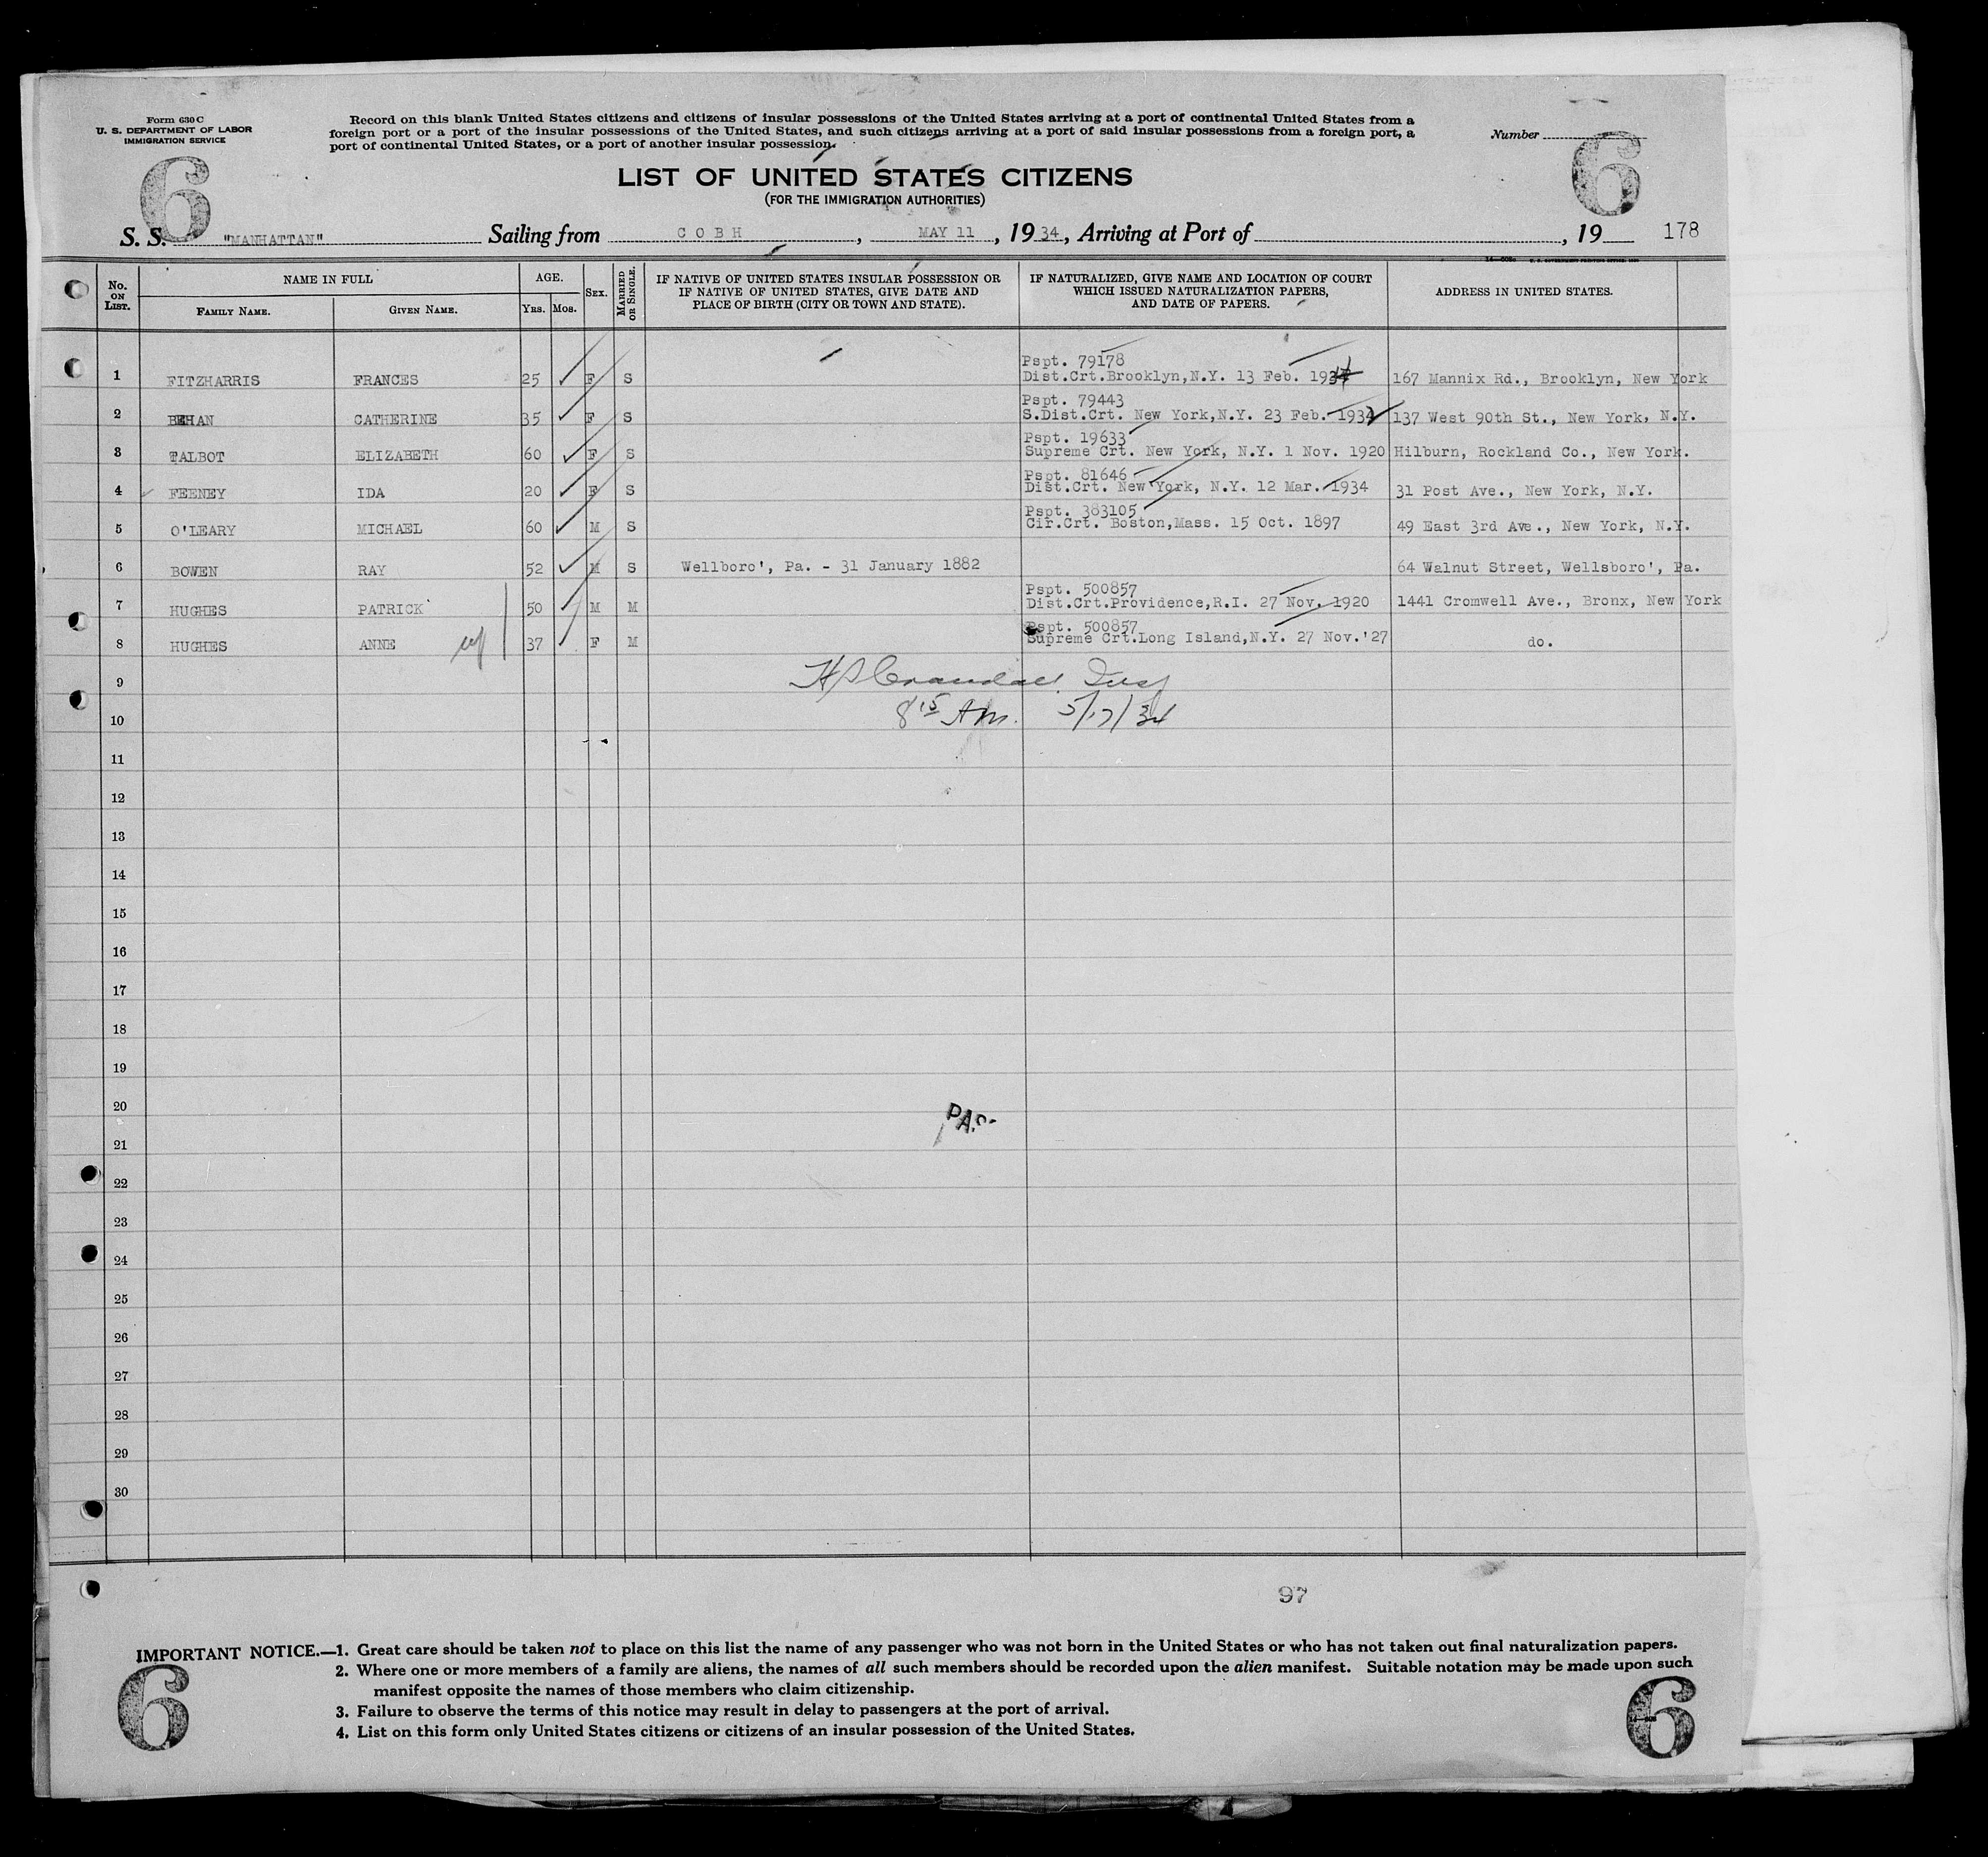 Form 630 C
U. S. DEPARTMENT OF LABOR
IMMIGRATION SERVICE
Record on this blank United States citizens and citizens of insular possessions of the United States arriving at a port of continental United States from a
foreign port or a port of the insular possessions of the United States, and such citizens arriving at a port of said insular possessions from a foreign port, a
port of continental United States, or a port of another insular possession.
Number
6
6
LIST OF UNITED STATES CITIZENS
(FOR THE IMMIGRATION AUTHORITIES)
S. S. "MANHATTAN" Sailing from COBH, MAY 11, 1934, Arriving at Port of , 19 178
No. ON LIST. NAME IN FULL AGE. SEX. MARRIED OR SINGLE. IF NATIVE OF UNITED STATES INSULAR POSSESSION OR IF NATIVE OF UNITED STATES, GIVE DATE AND PLACE OF BIRTH (CITY OR TOWN AND STATE). IF NATURALIZED, GIVE NAME AND LOCATION OF COURT WHICH ISSUED NATURALIZATION PAPERS, AND DATE OF PAPERS. ADDRESS IN UNITED STATES.
FAMILY NAME. GIVEN NAME. YRS. MOS.
Pspt. 79178
1 FITZHARRIS FRANCES 25 F S Dist.Crt.Brooklyn,N.Y. 13 Feb. 1934 167 Mannix Rd., Brooklyn, New York
Pspt. 79443
2 BEHAN CATHERINE 35 F S S.Dist.Crt. New York,N.Y. 23 Feb. 1934 137 West 90th St., New York, N.Y.
Pspt. 19633
3 TALBOT ELIZABETH 60 F S Supreme Crt. New York, N.Y. 1 Nov. 1920 Hilburn, Rockland Co., New York.
Pspt. 81646
4 FEENEY IDA 20 F S Dist.Crt. New York, N.Y. 12 Mar. 1934 31 Post Ave., New York, N.Y.
Pspt. 383105
5 O'LEARY MICHAEL 60 M S Cir.Crt. Boston,Mass. 15 Oct. 1897 49 East 3rd Ave., New York, N.Y.
6 BOWEN RAY 52 M S Wellboro', Pa. - 31 January 1882 64 Walnut Street, Wellsboro', Pa.
Pspt. 500857
7 HUGHES PATRICK 50 M M Dist.Crt.Providence,R.I. 27 Nov. 1920 1441 Cromwell Ave., Bronx, New York
Pspt. 500857
8 HUGHES ANNE 37 F M Supreme Crt.Long Island,N.Y. 27 Nov.'27 do.
9 Insp
10 8 15 AM. 5/17/34
11
12
13
14
15
16
17
18
19
20
21
22
23
24
25
26
27
28
29
30
97
IMPORTANT NOTICE.—1. Great care should be taken not to place on this list the name of any passenger who was not born in the United States or who has not taken out final naturalization papers.
2. Where one or more members of a family are aliens, the names of all such members should be recorded upon the alien manifest. Suitable notation may be made upon such
manifest opposite the names of those members who claim citizenship.
3. Failure to observe the terms of this notice may result in delay to passengers at the port of arrival.
4. List on this form only United States citizens or citizens of an insular possession of the United States.
6
6